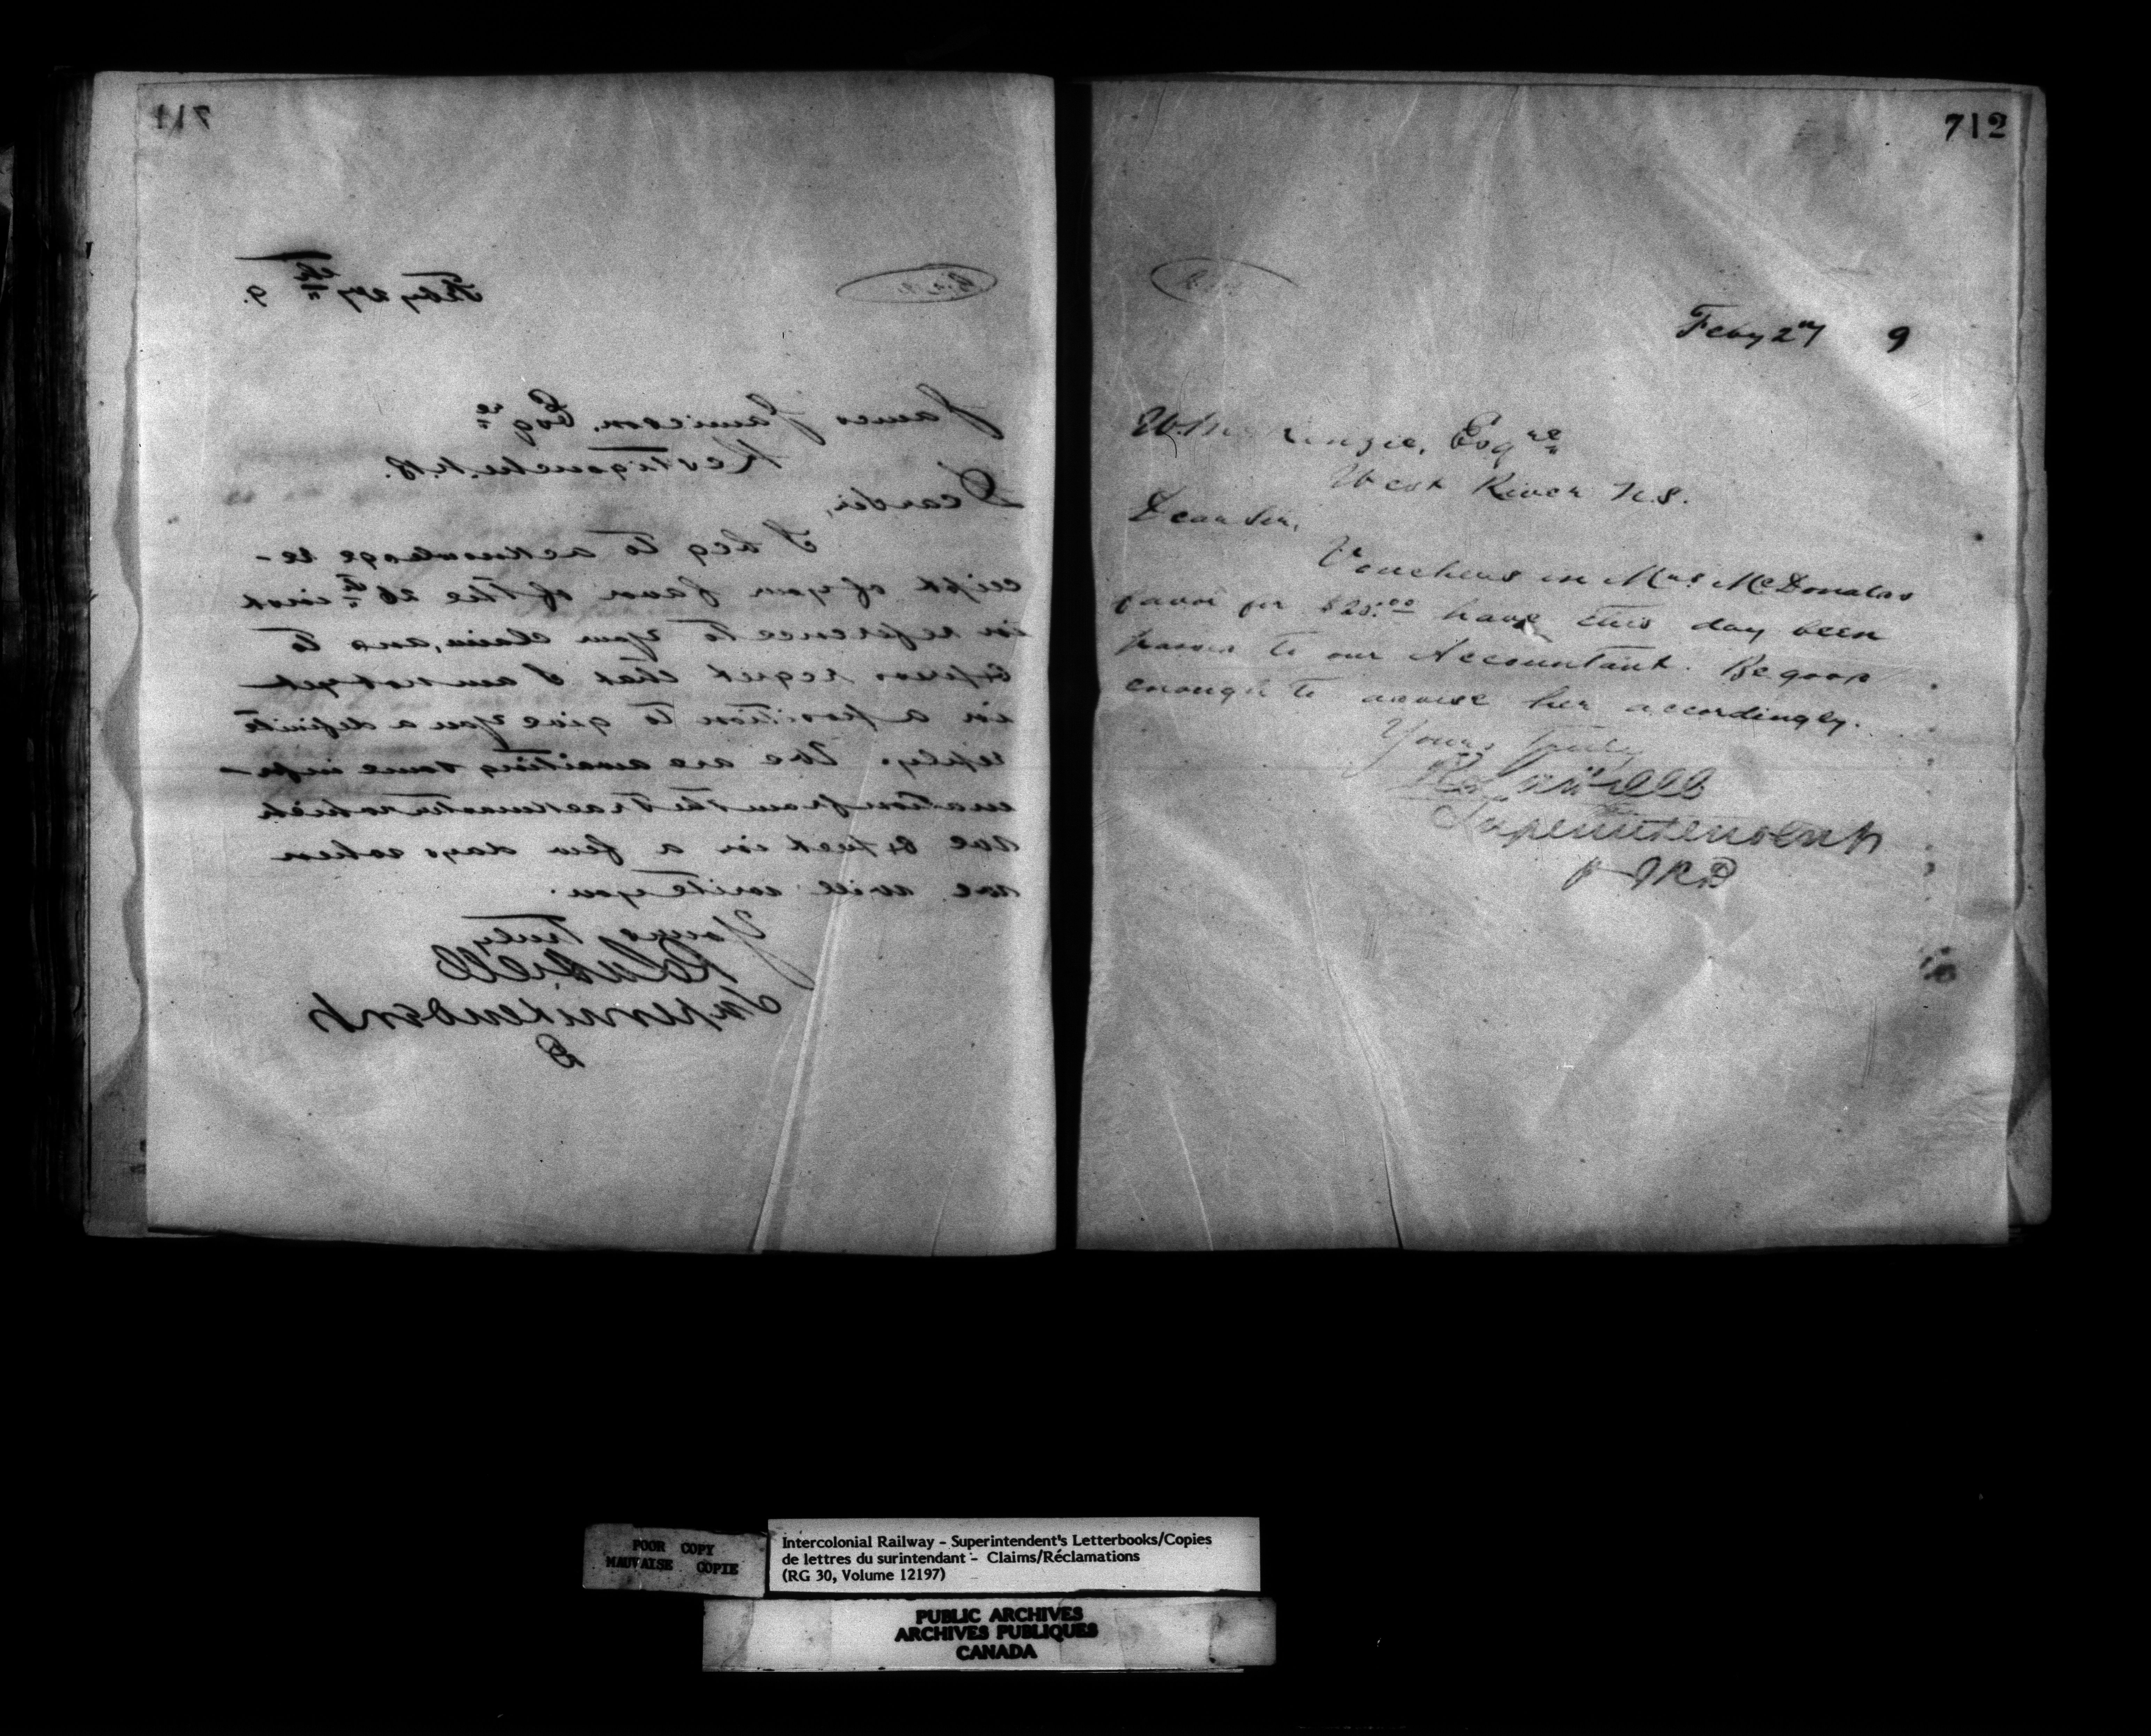 711
Feby 27th 9.
James Jamieson, Esqre
Restigouche. N.B.
Dear Sir,
I beg to acknowledge re-
ceipt of your favor of the 26th inst
in reference to your claim, and to
express regret that I am not yet
in a position to give you a definite
reply. We are awaiting some infor-
mation from the Trackmaster which
we expect in a few days when
we will write you.
Yours truly
Superintendent
712
Feby 27 9
Esqre
West River N.S.
Dear Sir,
Vouchers in Mrs McDonalds
favor for have this day been
passed to our Accountant. Be good
enough to advise her accordingly.
Yours truly
Superintendent
POOR COPY
MAUVAISE COPIE
Intercolonial Railway - Superintendent's Letterbooks/Copies
de lettres du surintendant - Claims/Réclamations
(RG 30, Volume 12197)
PUBLIC ARCHIVES
ARCHIVES PUBLIQUES
CANADA